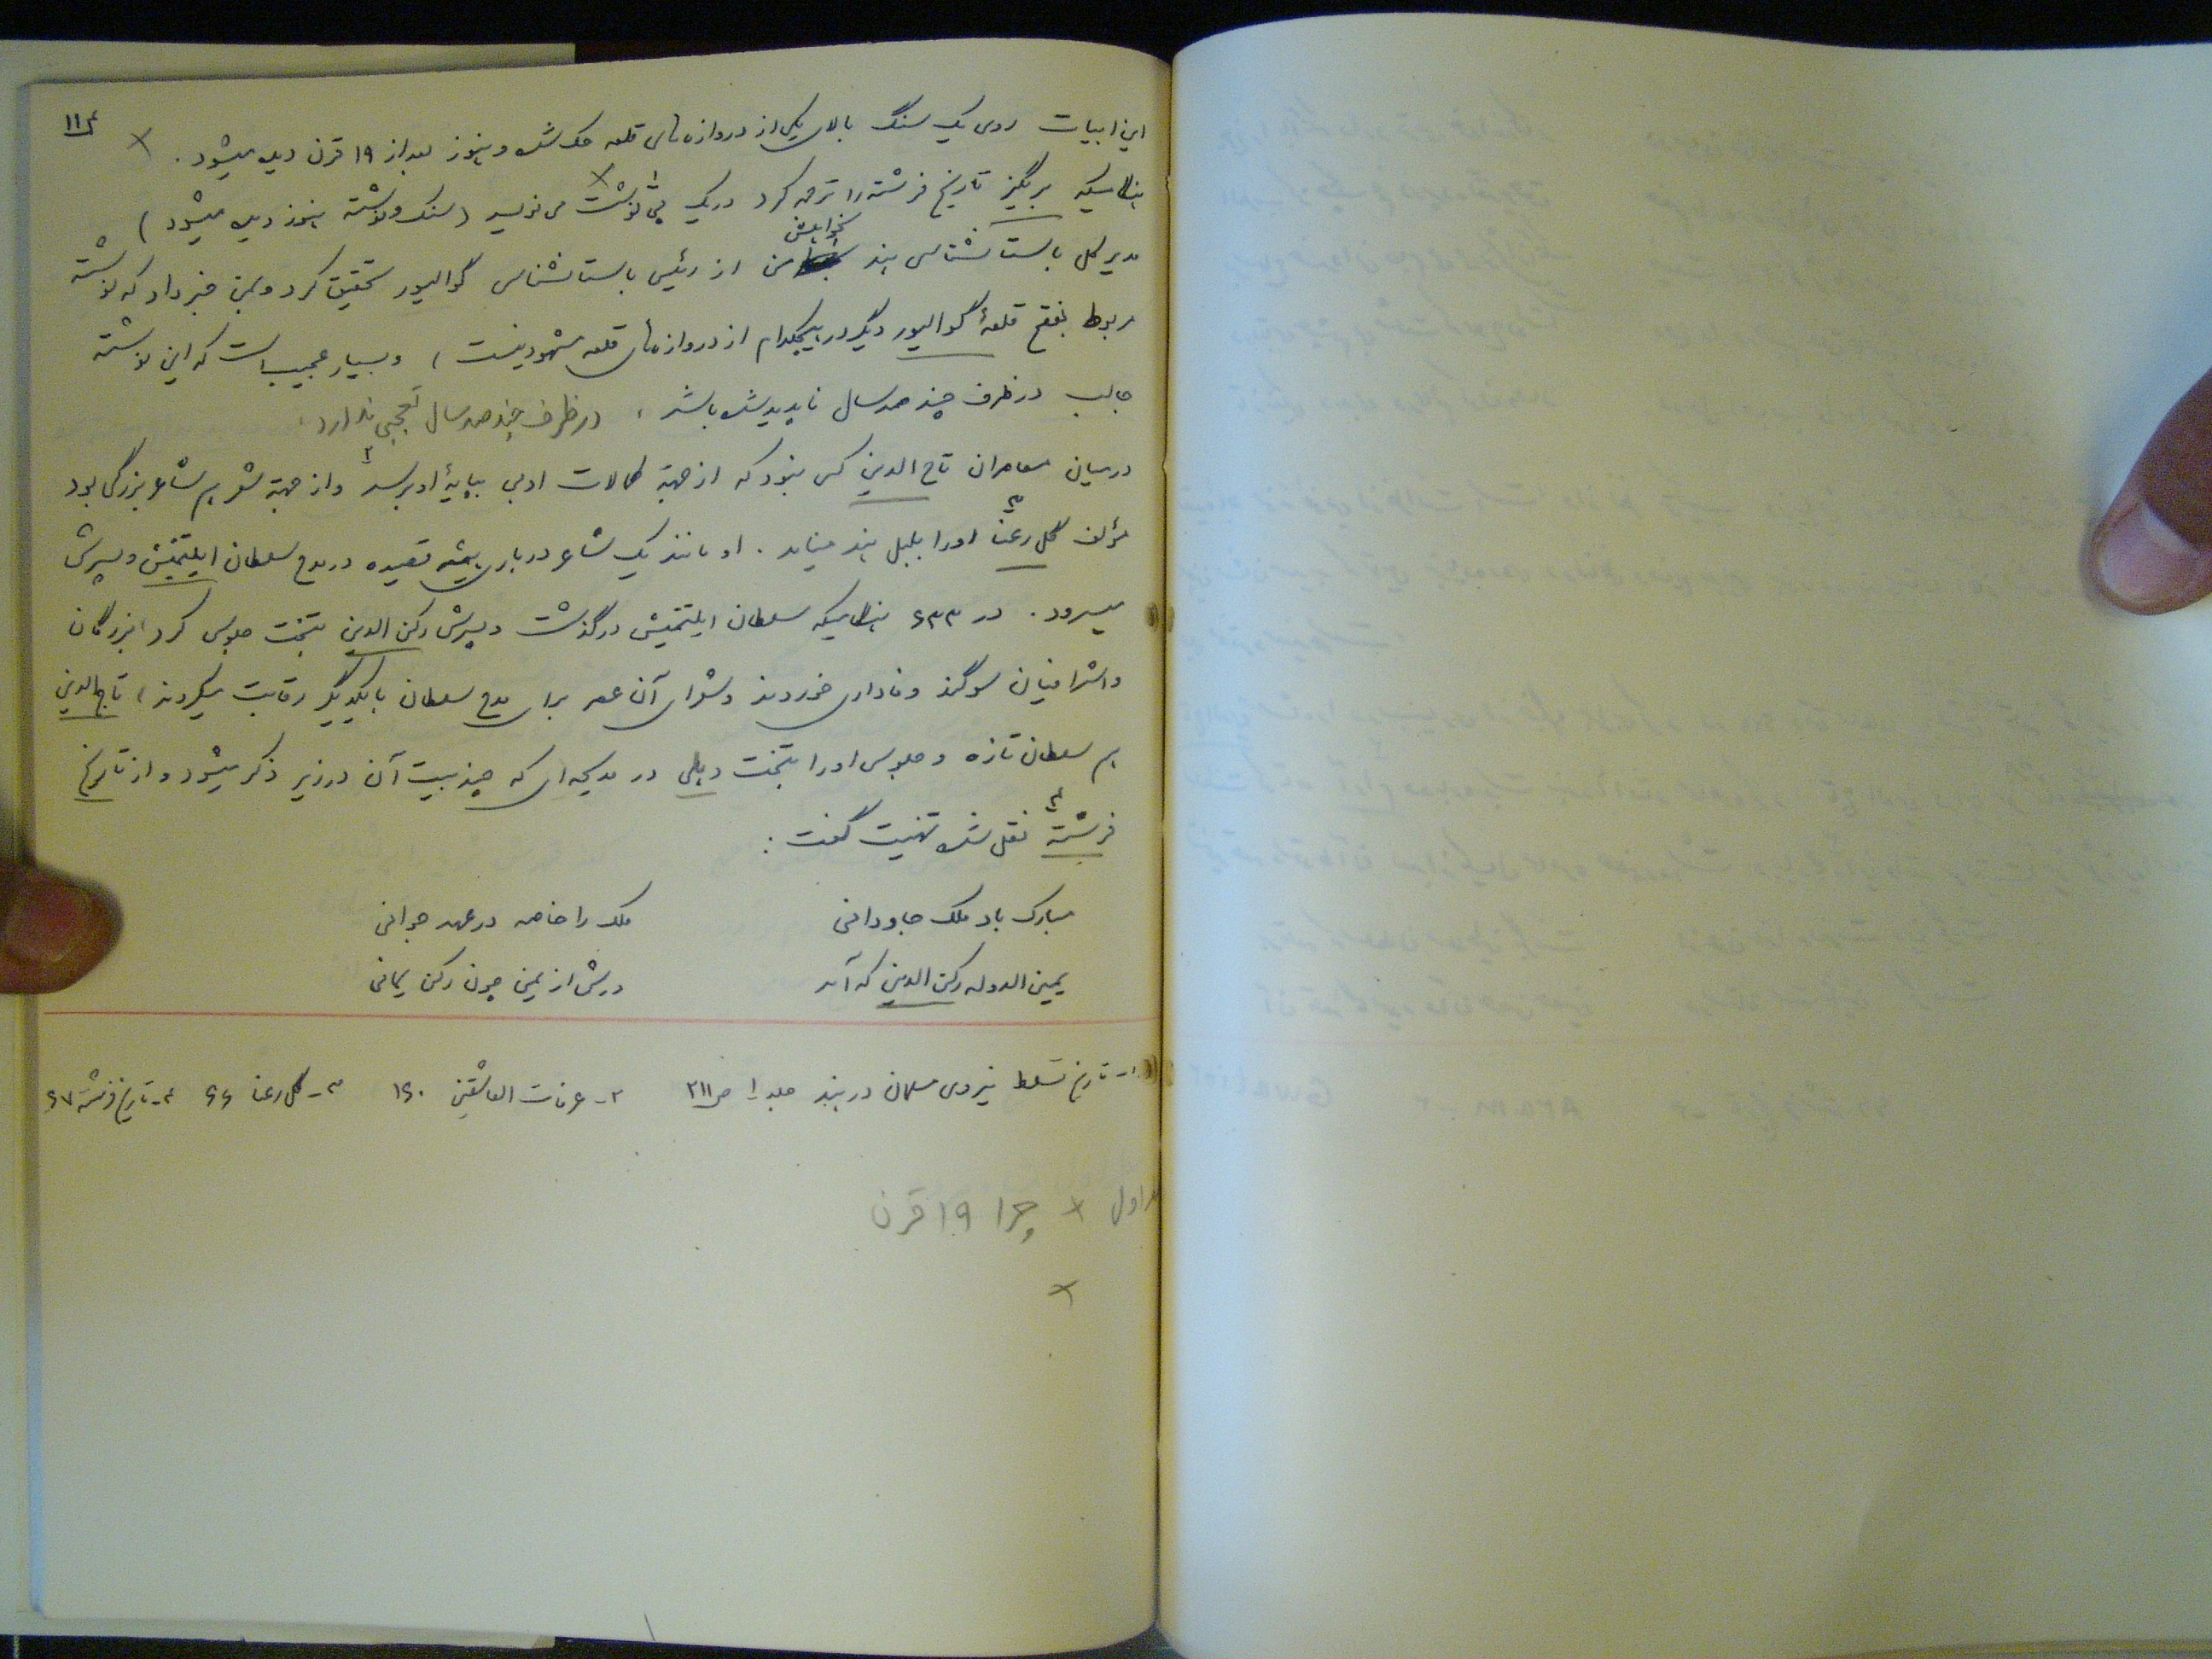 ۱۱۴
این ابیات روی یک سنگ بالای یکی از دروازه‌های قلعه حک شده و هنوز بعد از ۱۹ قرن دیده میشود. ×
هنگامیکه بریگیز تاریخ فرشته را ترجمه کرد در یک پی نوشت۱ × می نویسد (سنگ و نوشته هنوز دیده میشود)
مدیر کل باستانشناسی هند بخواهش من از رئیس باستانشناسی گوالیور تحقیق کرد و بمن خبر داد که نوشته
مربوط بفتح قلعهٔ گوالیور دیگر در هیچکدام از دروازه‌های قلعه مشهود نیست، و بسیار عجیب است که این نوشته
جالب در ظرف چند صد سال ناپدید شده باشد، در ظرف چند صد سال تعجبی ندارد،
در میان معاصران تاج الدین کسی نبود که از جهة کمالات ادبی بپایهٔ او برسد۲ و از جهة شعر هم شاعر بزرگی بود
مؤلف گل رعنا۳ او را بلبل هند مینامد. او مانند یک شاعر درباری همیشه قصیده در مدح سلطان ایلتتمش و پسرش
میسرود. در ۶۳۳ هنگامیکه سلطان ایلتتمش درگذشت و پسرش رکن الدین بتخت جلوس کرد، بزرگان
و اشرافیان سوگند وفاداری خوردند و شعرای آن عصر برای مدح سلطان با یکدیگر رقابت میکردند، تاج الدین
هم سلطان تازه و جلوس او را بتخت دهلی در مدیحه‌ای که چند بیت آن در زیر ذکر میشود و از تاریخ
فرشته۴ نقل شده تهنیت گفت:
مبارک باد ملک جاودانی ملک را خاصه در عهد جوانی
یمین الدوله رکن الدین که آمد درش از یمن چون رکن یمانی
۱ـ تاریخ تسلط نیروی مسلمان در هند جلد ۱ ص ۲۱۱ ۲ـ عرفات العاشقین ۱۶۰ ۳ـ گل رعنا ۶۶ ۴ـ تاریخ فرشته ۶۷
اول × چرا ۱۹ قرن
×